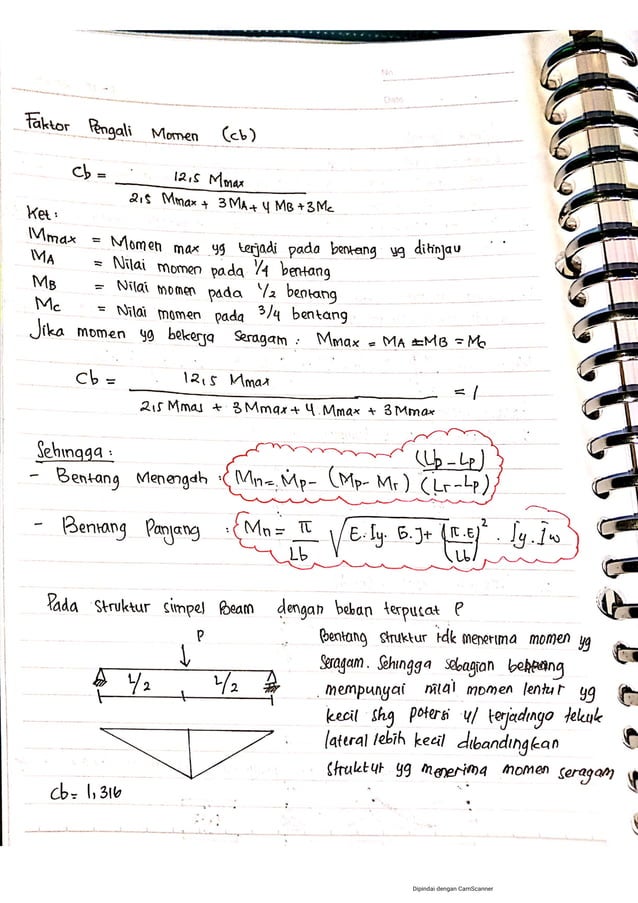 No
Date
Faktor Pengali Momen (cb)
Cb = 12,5 Mmax
2,5 Mmax + 3MA + 4 MB + 3Mc
Ket :
Mmax = Momen max yg terjadi pada bentang yg ditinjau
MA = Nilai momen pada 1/4 bentang
MB = Nilai momen pada 1/2 bentang
Mc = Nilai momen pada 3/4 bentang
Jika momen yg bekerja seragam : Mmax = MA = MB = Mc
Cb = 12,5 Mmax
2,5 Mmas + 3Mmax + 4.Mmax + 3Mmax = 1
Sehingga :
- Bentang Menengah : Mn = Mp - (Mp - Mr) (Lb - Lp) / (Lr - Lp)
- Bentang Panjang : Mn = π / Lb √ E. Iy. G. J + (π.E / Lb)² . Iy. Iw
Pada struktur simpel Beam dengan beban terpusat P
P
L/2 L/2
Cb = 1,316
Bentang struktur tdk menerima momen yg
seragam. Sehingga sebagian
mempunyai nilai momen lentur yg
kecil shg potensi u/ terjadinya tekuk
lateral lebih kecil dibandingkan
struktur yg menerima momen seragam
Dipindai dengan CamScanner